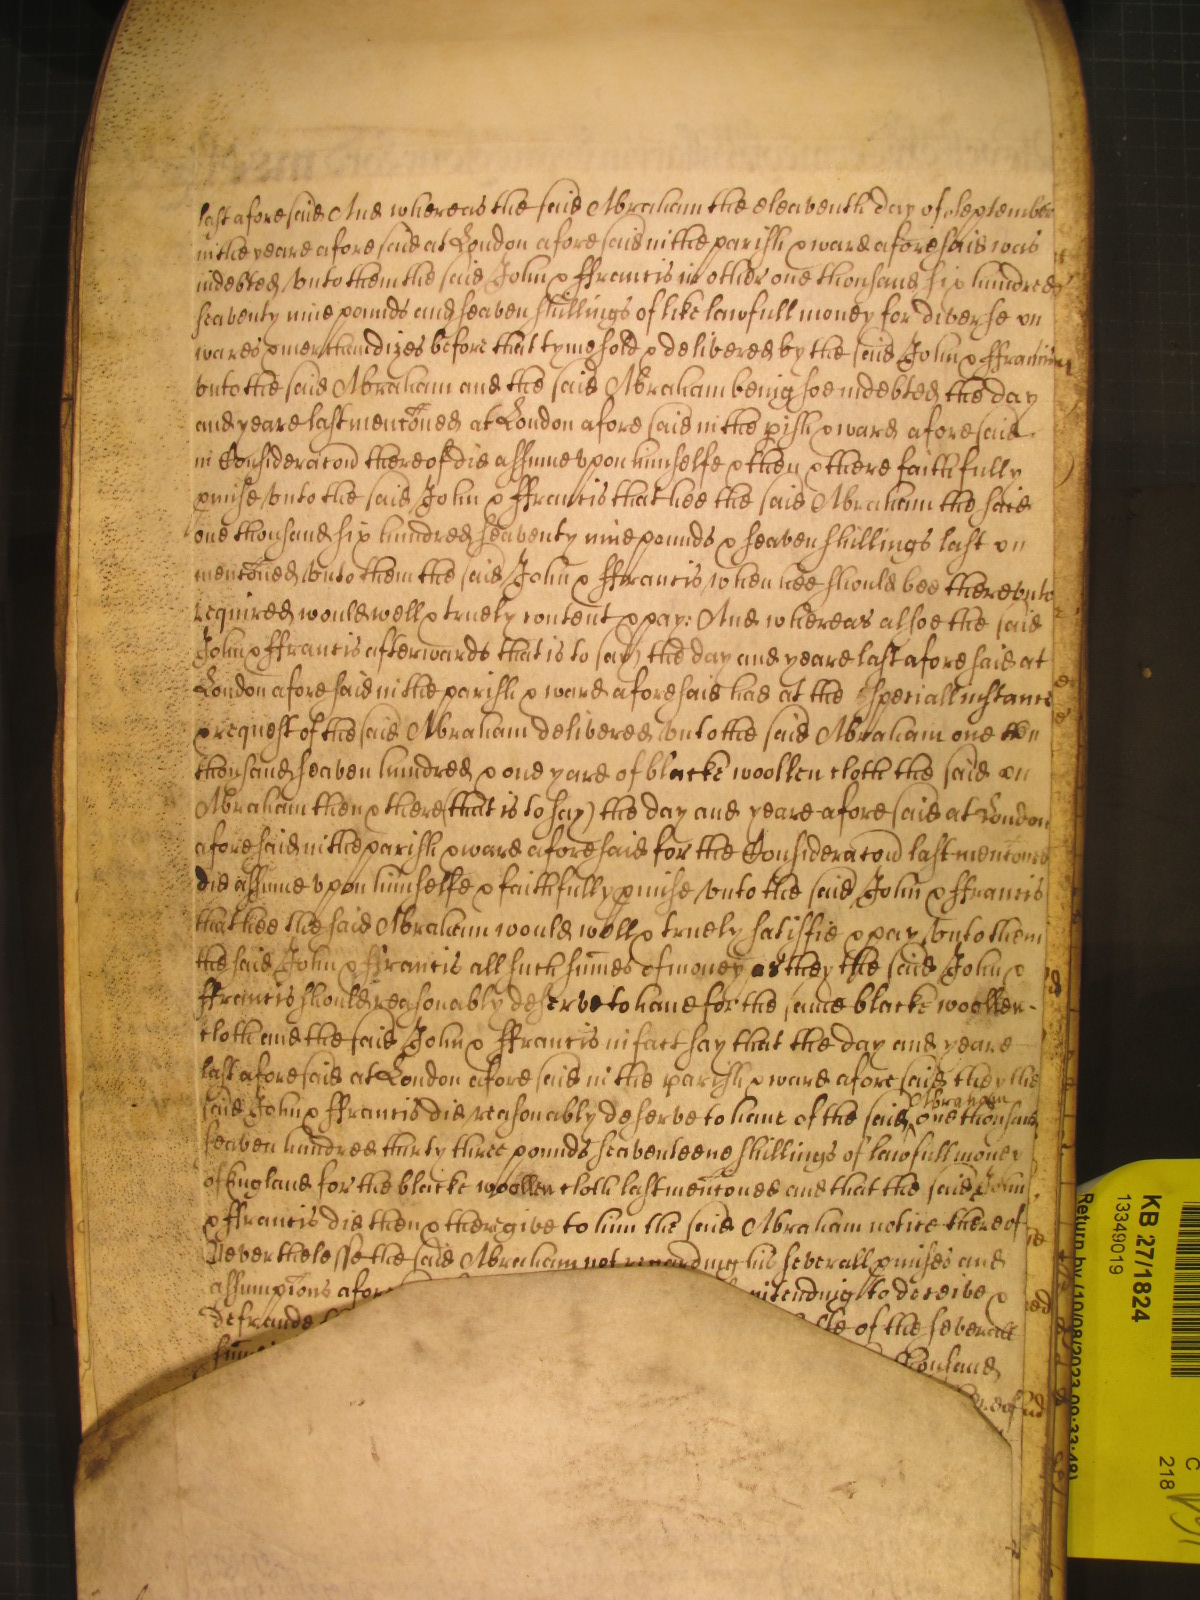 last aforesaid And whereas the said Abraham the eleaventh day of September
in the yeare aforesaid at London aforesaid in the parish & ward aforesaid was
indebted unto them the said John & ffrancis in other one thousand six hundred
seaventy nine pounds and seaven shillings of like lawfull money for diverse on
wares & merchandizes before that tyme sold & delivered by the said John & ffrancis
unto the said Abraham and the said Abraham being soe indebted the day
and yeare last menconed at London aforesaid in the pish & ward aforesaid
in Consideracon thereof did assume upon himselfe & then & there faithfully
pmise unto the said John & ffrancis that hee the said Abraham the said
one thousand six hundred seaventy nine pounds & seaven shillings last on
menconed unto them the said John & ffrancis when hee should bee thereunto
required would well & truely content & pay: And whereas alsoe the said
John & ffrancis afterwards that is to say) the day and yeare last aforesaid at
London aforesaid in the parish & ward aforesaid had at the speciall instance
& request of the said Abraham delivered unto the said Abraham one
thousand seaven hundred & one yard of blacke woollen cloth the said on
Abraham then & there (that is to say) the day and yeare aforesaid at London
aforesaid in the parish & ward aforesaid for the Consideracon last menconed
did assume upon himselfe & faithfully pmise unto the said John & ffrancis
that hee the said Abraham would well & truely satisfie & pay unto them
the said John & ffrancis all such sumes of money as they the said John &
ffrancis should reasonably deserve to have for the same blacke woollen
cloth and the said John & ffrancis in fact say that the day and yeare
last aforesaid at London aforesaid in the parish & ward aforesaid they the
said John & ffrancis did reasonably deserve to have of the said Abraham one thousand
seaven hundred thirty three pounds seaventeene shillings of lawfull money
of England for the blacke woollen cloth last menconed and that the said John
& ffrancis did then & there give to him the said Abraham notice thereof
Neverthelesse the said Abraham not regarding his severall pmises and
assumptions afore intending to deceive &
defraude of the severall
thousand
KB 27/1824
13349019
Return by (10/08/2023 09:33:48)
C
218